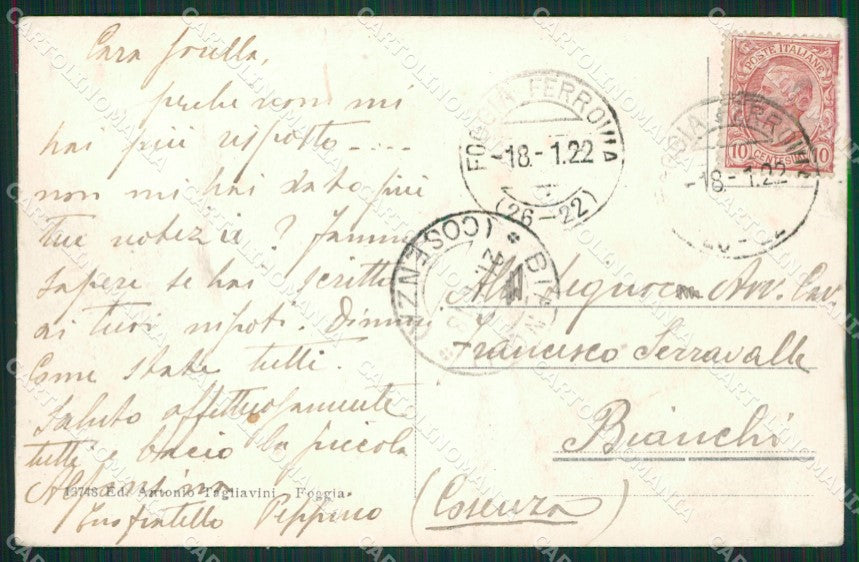 Cara sorella,
perche non mi
hai più risposto ....
non mi hai dato più
tue notizie? Fammi
sapere se hai scritto
ai tuoi nipoti. Dimmi
Come state tutti.
Saluto affettuosamente
tutti e bacio la piccola
Alfonsina
Tuo fratello Peppino
13748 Ed. Antonio Tagliavini - Foggia
POSTE ITALIANE
10 CENTESIMI 10
FOGGIA FERROVIA
-18-1.22
(26-22)
FOGGIA FERROVIA
-18-1.22
(COSENZA)
Alla Signora Avv. Cav.
Francesco Serravalle
Bianchi
(Cosenza)
CARTOLINOMANIA